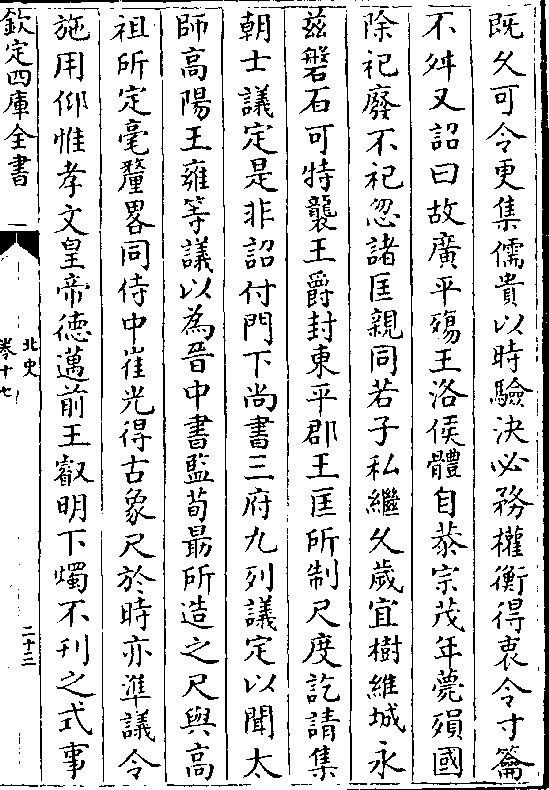 既久可令更集儒貴以時驗決必務權衡得衷令寸籥
不舛又詔曰故廣平殤王洛侯體自恭宗茂年薨殞國
除祀廢不祀忽諸匡親同若子私繼久歲宜樹維城永
茲磐石可特襲王爵封東平郡王匡所制尺度訖請集
朝士議定是非詔付門下尚書三府九列議定以聞太
師高陽王雍等議以為晉中書監荀勗所造之尺與高
祖所定毫釐畧同侍中崔光得古象尺於時亦準議令
施用仰惟孝文皇帝德邁前王叡明下燭不刊之式事
欽定四庫全書
北史
卷十七
二十三